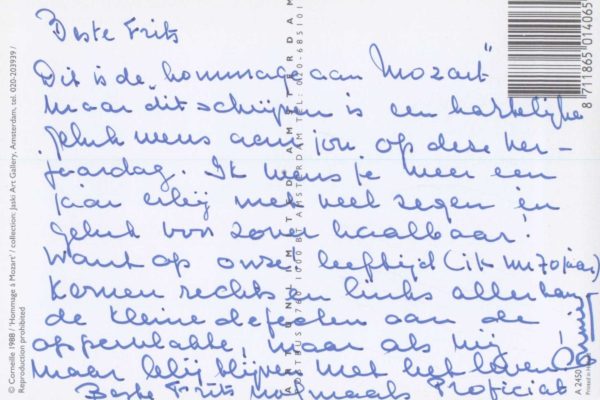 Beste Frits
Dit is de "hommage aan Mozart"
maar dit schrijven is een hartelijke
geluk wens aan jou op deze ver-
jaardag. Ik wens je weer een
jaar erbij met veel zegen en
geluk voor zover haalbaar!
Want op onze leeftijd (ik nu 70 jaar)
komen rechts en links allerhand
de kleine defecten aan de
oppervlakte, maar als wij
maar blij blijven met het leven!
Beste Frits nogmaals Proficiat
© Corneille 1988 / 'Hommage à Mozart' / collection: Jaski Art Gallery, Amsterdam, tel. 020-203939 /
Reproduction prohibited
ART UNLIMITED AMSTERDAM
POSTBUS 10000 BT AMSTERDAM TEL: 020-685101
8 711865 014065
A 2450
Printed in